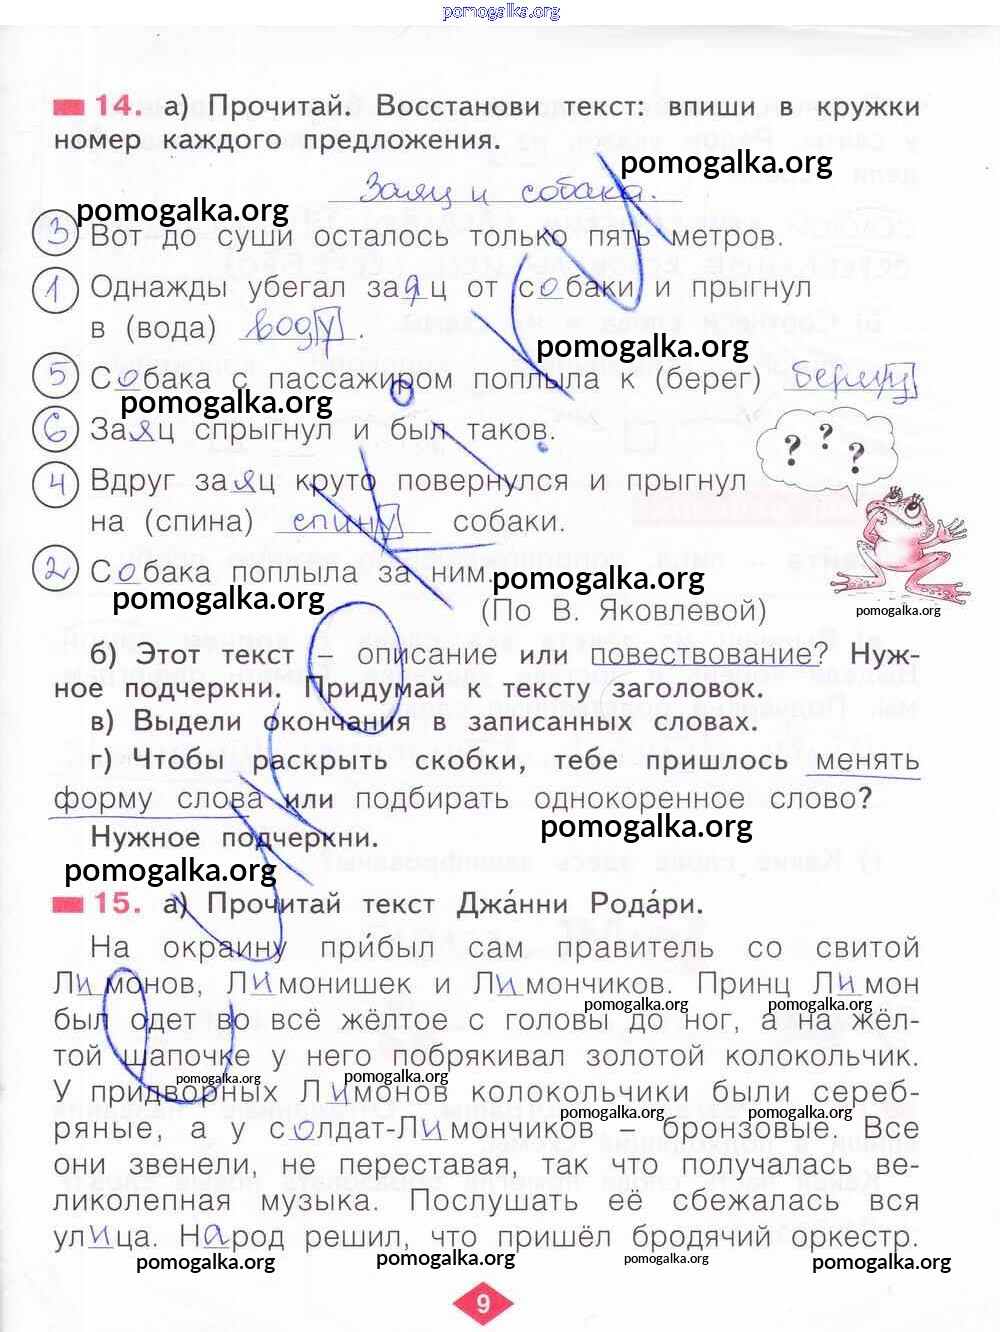 pomogalka.org
14. а) Прочитай. Восстанови текст: впиши в кружки
номер каждого предложения.
pomogalka.org
Заяц и собака.
pomogalka.org
3 Вот до суши осталось только пять метров.
1 Однажды убегал заяц от собаки и прыгнул
в (вода) воду.
pomogalka.org
5 Собака с пассажиром поплыла к (берег) берегу
pomogalka.org
6 Заяц спрыгнул и был таков.
? ? ?
4 Вдруг заяц круто повернулся и прыгнул
на (спина) спину собаки.
2 Собака поплыла за ним.
pomogalka.org
pomogalka.org
(По В. Яковлевой)
pomogalka.org
б) Этот текст – описание или повествование? Нуж-
ное подчеркни. Придумай к тексту заголовок.
в) Выдели окончания в записанных словах.
г) Чтобы раскрыть скобки, тебе пришлось менять
форму слова или подбирать однокоренное слово?
Нужное подчеркни.
pomogalka.org
pomogalka.org
15. а) Прочитай текст Джа́нни Рода́ри.
На окраину при́был сам правитель со свитой
Лимонов, Лимонишек и Лимончиков. Принц Лимон
pomogalka.org
pomogalka.org
был одет во всё жёлтое с головы до ног, а на жёл-
той шапочке у него побрякивал золотой колокольчик.
pomogalka.org
pomogalka.org
У придворных Лимонов колокольчики были сереб-
pomogalka.org
pomogalka.org
ряные, а у солдат-Лимончиков – бронзовые. Все
они звенели, не переставая, так что получалась ве-
ликолепная музыка. Послушать её сбежалась вся
улица. Народ решил, что пришёл бродячий оркестр.
pomogalka.org
pomogalka.org
pomogalka.org
pomogalka.org
9